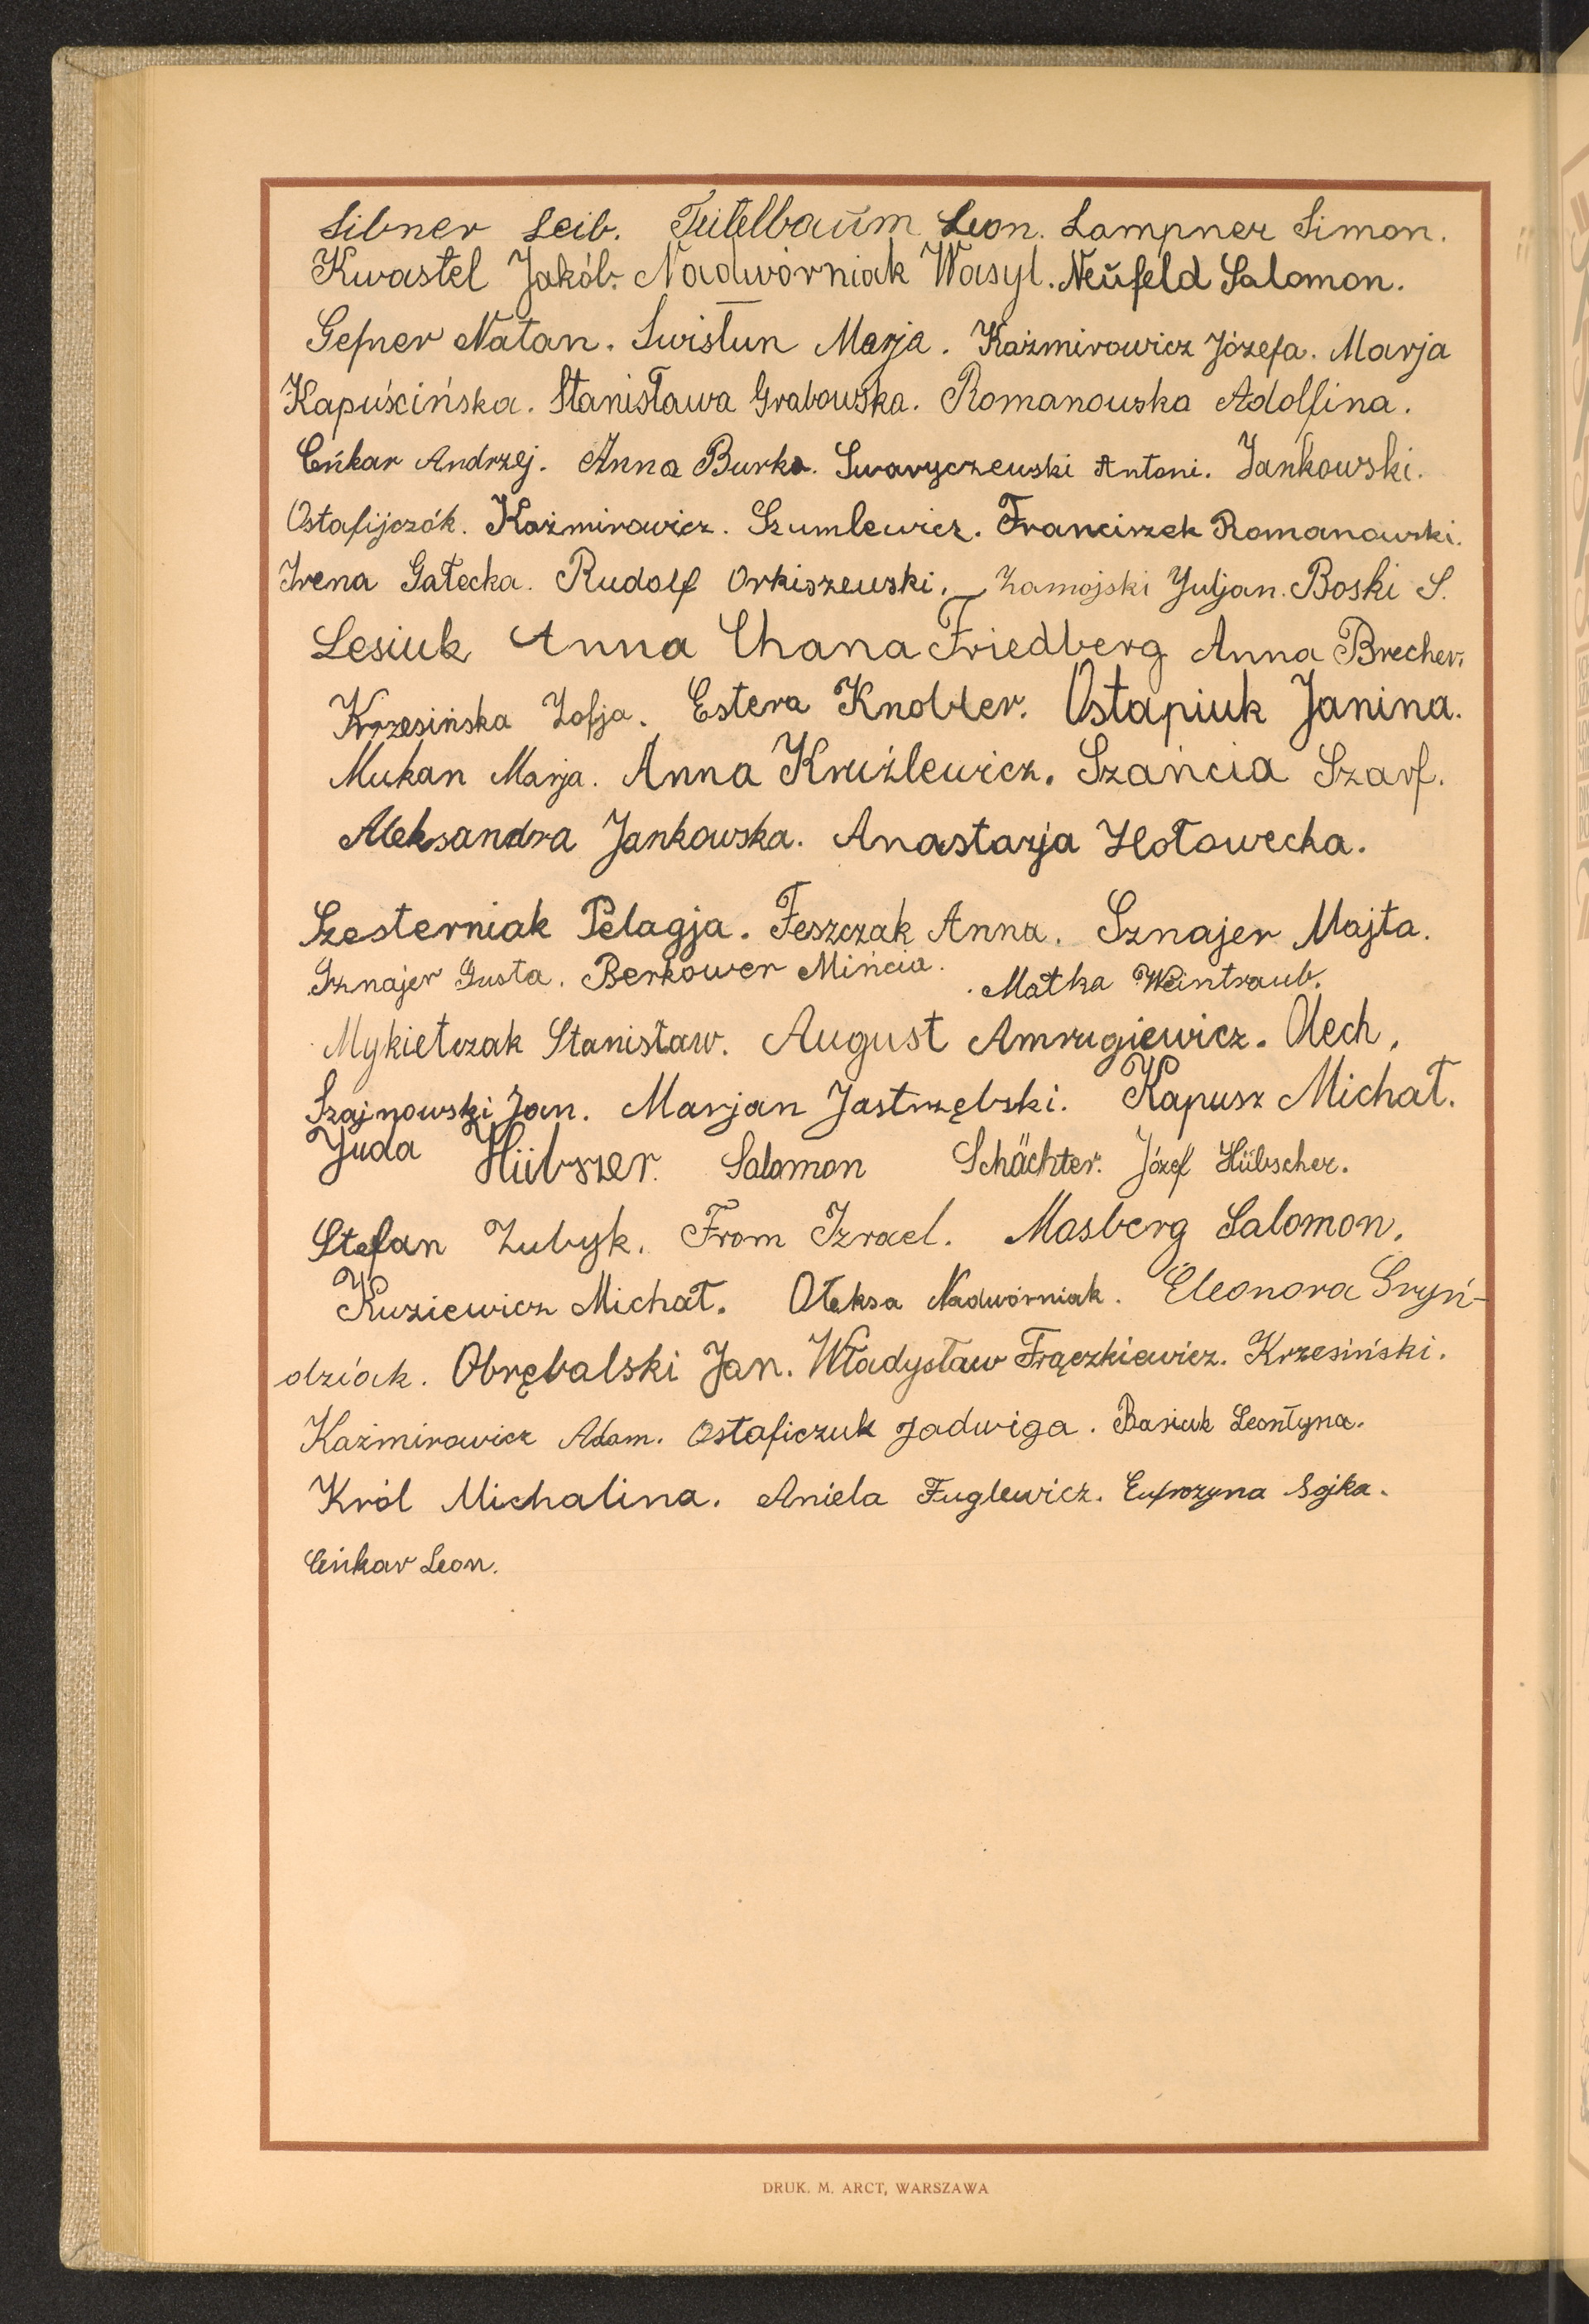 Libner Leib. Teitelbaum Leon. Lampner Simon.
Kwastel Jakób. Nadwórniak Wasyl. Neufeld Salomon.
Gefner Natan. Swistun Marja. Kaźmirowicz Józefa. Marja
Kapuścińska. Stanisława Grabowska. Romanowska Adolfina.
Ceńkar Andrzej. Anna Burka. Swaryczewski Antoni. Jankowski.
Ostafijczók. Kaźmirowicz. Szumlewicz. Franciszek Romanowski.
Irena Gałecka. Rudolf Orkiszewski. Zamojski Juljan. Boski S.
Lesiuk Anna Chana Friedberg Anna Brecher.
Krzesińska Zofja. Estera Knobler. Ostapiuk Janina.
Mukan Marja. Anna Kruźlewicz. Szańcia Szarf.
Aleksandra Jankowska. Anastazja Hołowecha.
Szesterniak Pelagja. Feszczak Anna. Sznajer Majta.
Sznajer Gusta. Berkower Mińcia. Matka Weintraub.
Mykietczak Stanisław. August Amrugiewicz. Olech.
Szajnowski Jan. Marjan Jastrzębski. Kapusz Michał.
Juda Hübszer. Salomon Schächter. Józef Hübscher.
Stefan Zubyk. From Izrael. Masberg Salomon.
Kuziewicz Michał. Ołeksa Nadwórniak. Eleonora Gryń-
dziak. Obrębalski Jan. Władysław Frączkiewicz. Krzesiński.
Kaźmirowicz Adam. Ostaficzuk Jadwiga. Basiuk Leontyna.
Król Michalina. Aniela Fuglewicz. Eufrozyna Sojka.
Ceńkar Leon.
DRUK. M. ARCT, WARSZAWA